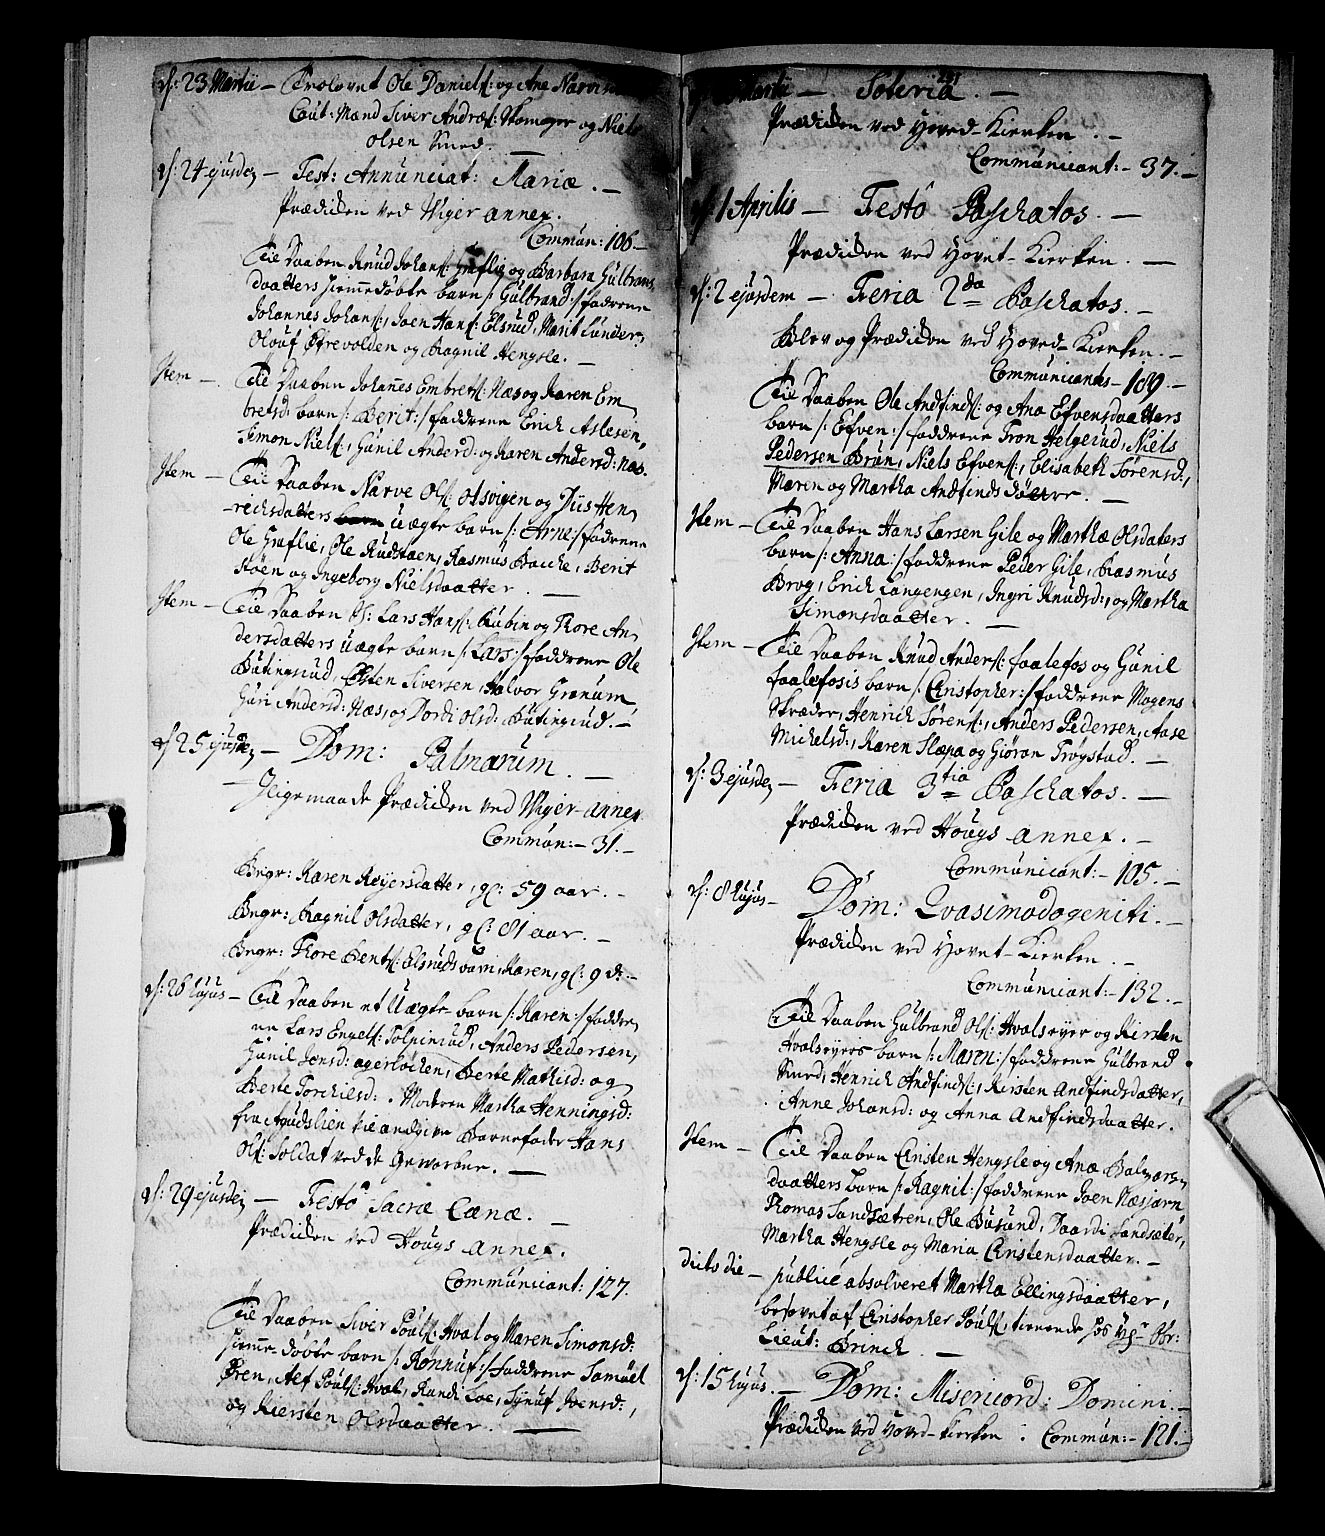 d: 23 Martii — Trolovet Ole Daniels: og Ane Narves
Caut: Mænd Siver Andræs: Skomager og Niels
Olsen Smed —
d: 24 ejusdem — Fest: Annunciat: Mariæ. —
Prædicken ved Wiger annex.
Commun: 106 —
Til Daaben Knud Johans: Graflie og Barbara Gulbrans
daatters hiemmedøbte barn /: Gulbrand :/ faddrene
Johannes Johans:, Joen Hans: Elsrud, Marit Lunder,
Olouf Øfrevolden og Ragnil Hengsle. —
Item — Til Daaben Johannes Embrets: Næs og Karen Em
bretsd: barn /: Berit :/ faddrene Erich Aslesen,
Simon Niels:, Gunil Andersd: og Karen Andersd: Næs.
Item — Til Daaben Narve Ols: Olsvigen og Siis Hen
richsdatters uægte barn /: Arne :/ fadrene
Ole Graflie, Ole Rudstaen, Rasmus Backe, Berit
Moen og Ingeborg Nielsdaatter. —
Item — Til Daaben S: Lars Hans: Rubin og Thore An
dersdatters uægte barn /: Lars :/ faddrene Ole
Butingsrud, Østen Siversen, Halvor Granum,
Guri Andersd: Næs, og Dordi Olsd: Butingsrud. —
d: 25 ejusdem — Dom: Palmarum. —
— Ligemaade Prædicken ved Wiger-annex
Commun: — 31. —
Begr: Karen Reyersdatter, gl: 59 aar. —
Begr: Ragnil Olsdatter, gl: 81 aar. —
Begr: Thore Bents: Elsruds barn, Karen, gl: 9 d: —
d: 28 hujus — Til Daaben et Uægte barn /: Karen :/ faddre
ne Lars Engels: Tolpinrud, Anders Pedersen,
Gunil Jensd: agerløcken, Berte Mathisd: og
Berte Torchilsd:. Moderen Martha Henningsd:
fra Agudslien tilangive Barnefader Hans
Ols: Soldat ved de Geworbne. —
d: 29 ejusdem — Festo Sacræ Cænæ. —
Prædicken ved Hougs annex.
Communicant: 127.
Til Daaben Siver Pouls: Hval og Maren Simonsd:
hiemme-døbte barn /: Rønnuf :/ faddrene Samuel
Øren, Alf Pouls: Hval, Randi Loe, Synuf Joensd:,
og Kiersten Olsdaatter. —
Martii — Soteria. —
Prædicken ved Hoved-Kierken. —
Communicant: — 37. —
d: 1 Aprilis — Festo Paschatos. —
Prædicken ved Hovet-Kierken. —
d: 2 ejusdem — Feria 2da Paschatos. —
Blev og Prædicken ved Hoved-Kierken. —
Communicants — 189. —
Til Daaben Ole Andfinds: og Ane Efvensdaatters
barn /: Efven :/ faddrene Tron Helgerud, Niels
Pedersen Brun, Niels Efvens:, Elisabeth Sørensd:,
Maren og Martha Andfinds døttre. —
Item — Til Daaben Hans Larsen Gile og Marthæ Olsdaters
barn /: Anna :/ faddrene Peder Gile, Rasmus
Brog, Erich Langengen, Ingri Knudsd:, og Martha
Simonsdaatter. —
Item — Til Daaben Knud Anders: faalefos og Gunil
faalefosis barn /: Christopher :/ faddrene Mogens
Skræder, Henrich Sørens:, Anders Pedersen, Aase
Michelsd:, Karen Slæpa og Giøran Trøgstad. —
d: 3 ejusdem — Feria 3tia Paschatos. —
Prædicken ved Hougs annex. —
Communicant: — 105. —
d: 8 hujus — Dom: Qvasimodogeniti. —
Prædicken ved Hovet-Kierken. —
Communicant: — 132. —
Til Daaben Gulbrand Ols: Hvalseyer og Kirsten
Hvalseyers barn /: Maren :/ faddrene Gulbrand
Smed, Henrich Andfinds:, Kirsten Andfindsdaatter,
Anne Johansd: og Anna Andfindsdaatter.
Item — Til Daaben Christen Hengsle og Anæ Halvors
daatters barn /: Ragnil :/ faddrene Joen Næsjørn
Thomas Sandsætren, Ole Busund, Daardi Sandsæter,
Martha Hengsle og Maria Christensdaatter. —
dicto die — publicè absolveret Martha Ellingsdaatter,
besovet af Christopher Pouls:, tienende hos Hr. Obr:
Lieut: Brinch —
d: 15 hujus. — Dom: Misericord: Domini. —
Prædicken ved Hoved-Kierken. Commun: — 121. —